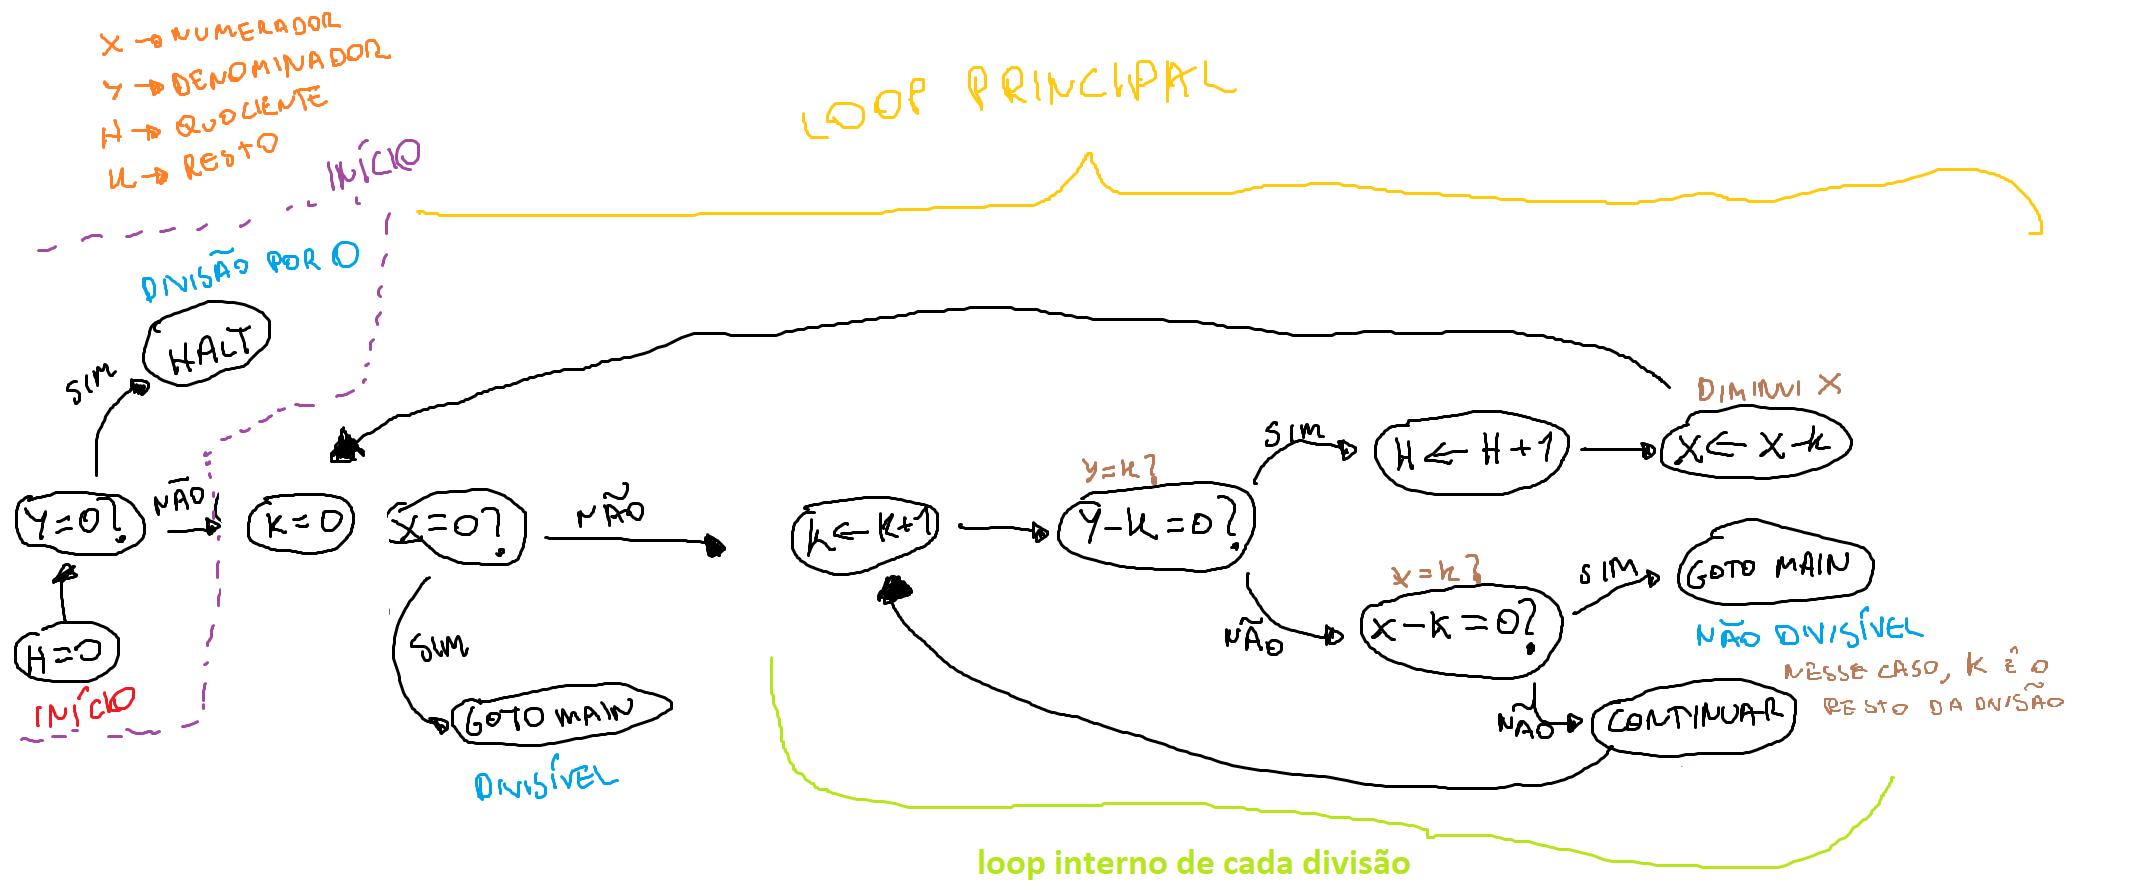 X → NUMERADOR
Y → DENOMINADOR
H → QUOCIENTE
K → RESTO
INÍCIO
LOOP PRINCIPAL
DIVISÃO POR 0
HALT
SIM
Y=0?
NÃO
H=0
INÍCIO
K=0
X=0?
NÃO
SIM
GOTO MAIN
DIVISÍVEL
K ← K+1
Y=K?
Y-K=0?
SIM
H ← H+1
DIMINUI X
X ← X-K
NÃO
X=K?
X-K=0?
SIM
GOTO MAIN
NÃO DIVISÍVEL
NESSE CASO, K É O
RESTO DA DIVISÃO
NÃO
CONTINUAR
loop interno de cada divisão